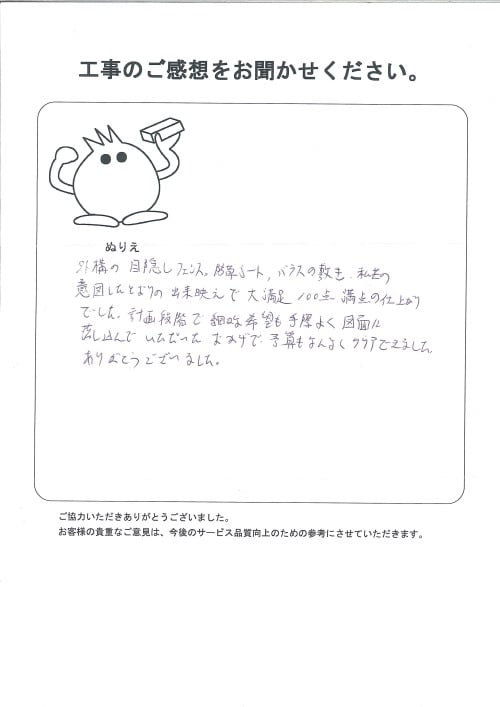 工事のご感想をお聞かせください。
ぬりえ
外構の目隠しフェンス。防草シート、バラスの敷き、私共の
意図したとおりの出来映えで大満足 100点満点の仕上がり
でした。計画段階で細かな希望も手際よく図面に
落し込んでいただいたおかげで予算もなんなくクリアできました。
ありがとうございました。
ご協力いただきありがとうございました。
お客様の貴重なご意見は、今後のサービス品質向上のための参考にさせていただきます。